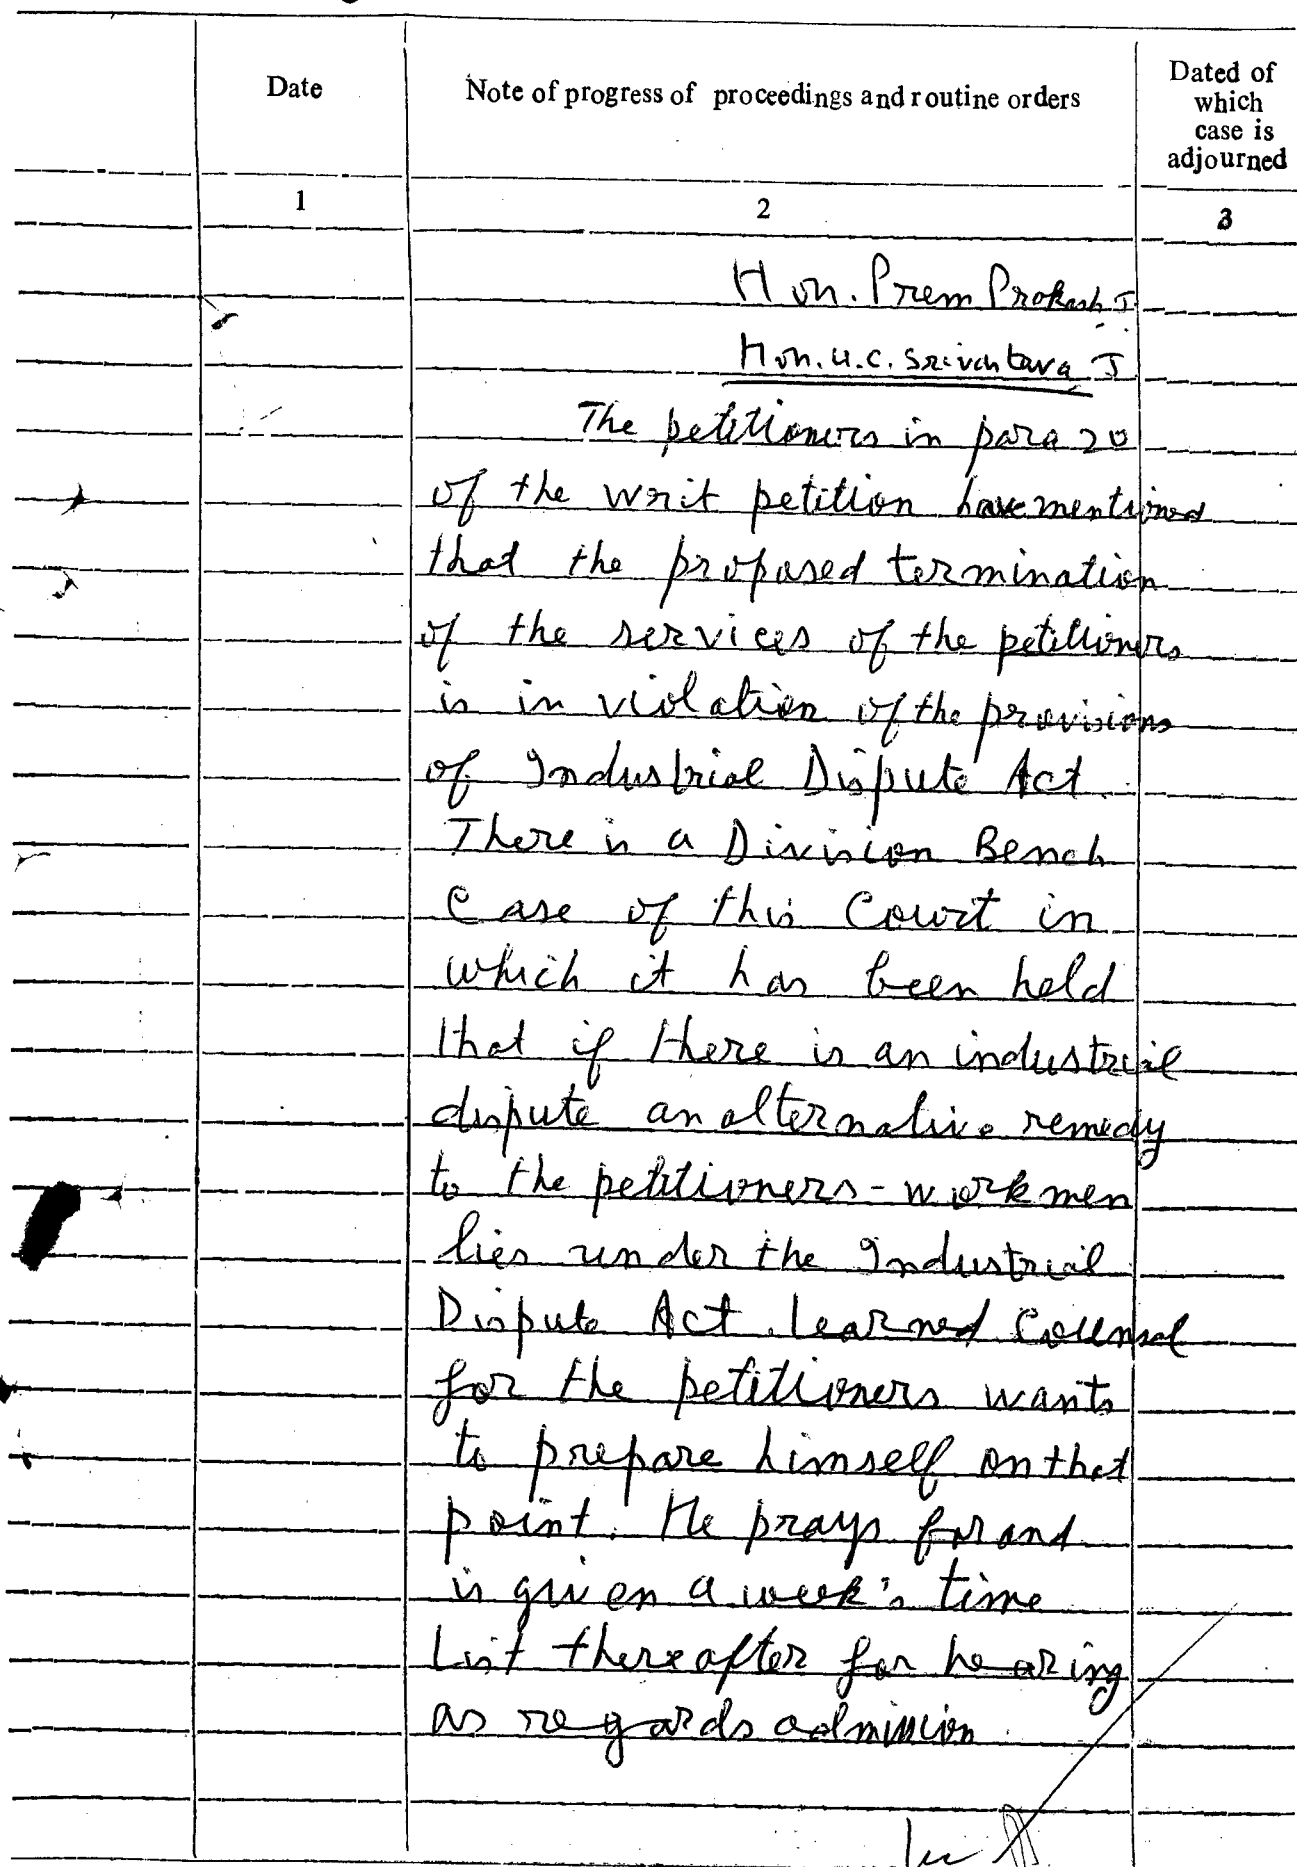 Date
Note of progress of proceedings and routine orders
Dated of
which
case is
adjourned
1
2
3
Hon. Prem Prokash J.
Hon. U.C. Srivastava J
The petitioners in para 20
of the writ petition have mentioned
that the proposed termination
of the services of the petitioners
is in violation of the provisions
of Industrial Dispute Act.
There is a Division Bench
Case of this Court in
which it has been held
that if there is an industrial
dispute an alternative remedy
to the petitioners - workmen
lies under the Industrial
Dispute Act. Learned Counsel
for the petitioners wants
to prepare himself on that
point. He prays for and
is given a week's time
List thereafter for hearing
as regards admission.